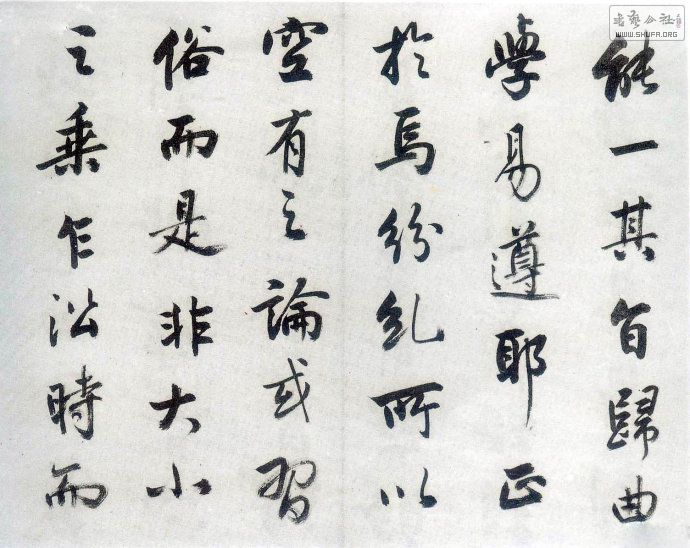 能一其旨歸曲
學易遵耶正
於焉紛乱所以
空有之論或習
俗而是非大小
之乘乍沿時而
书艺公社
WWW.SHUFA.ORG